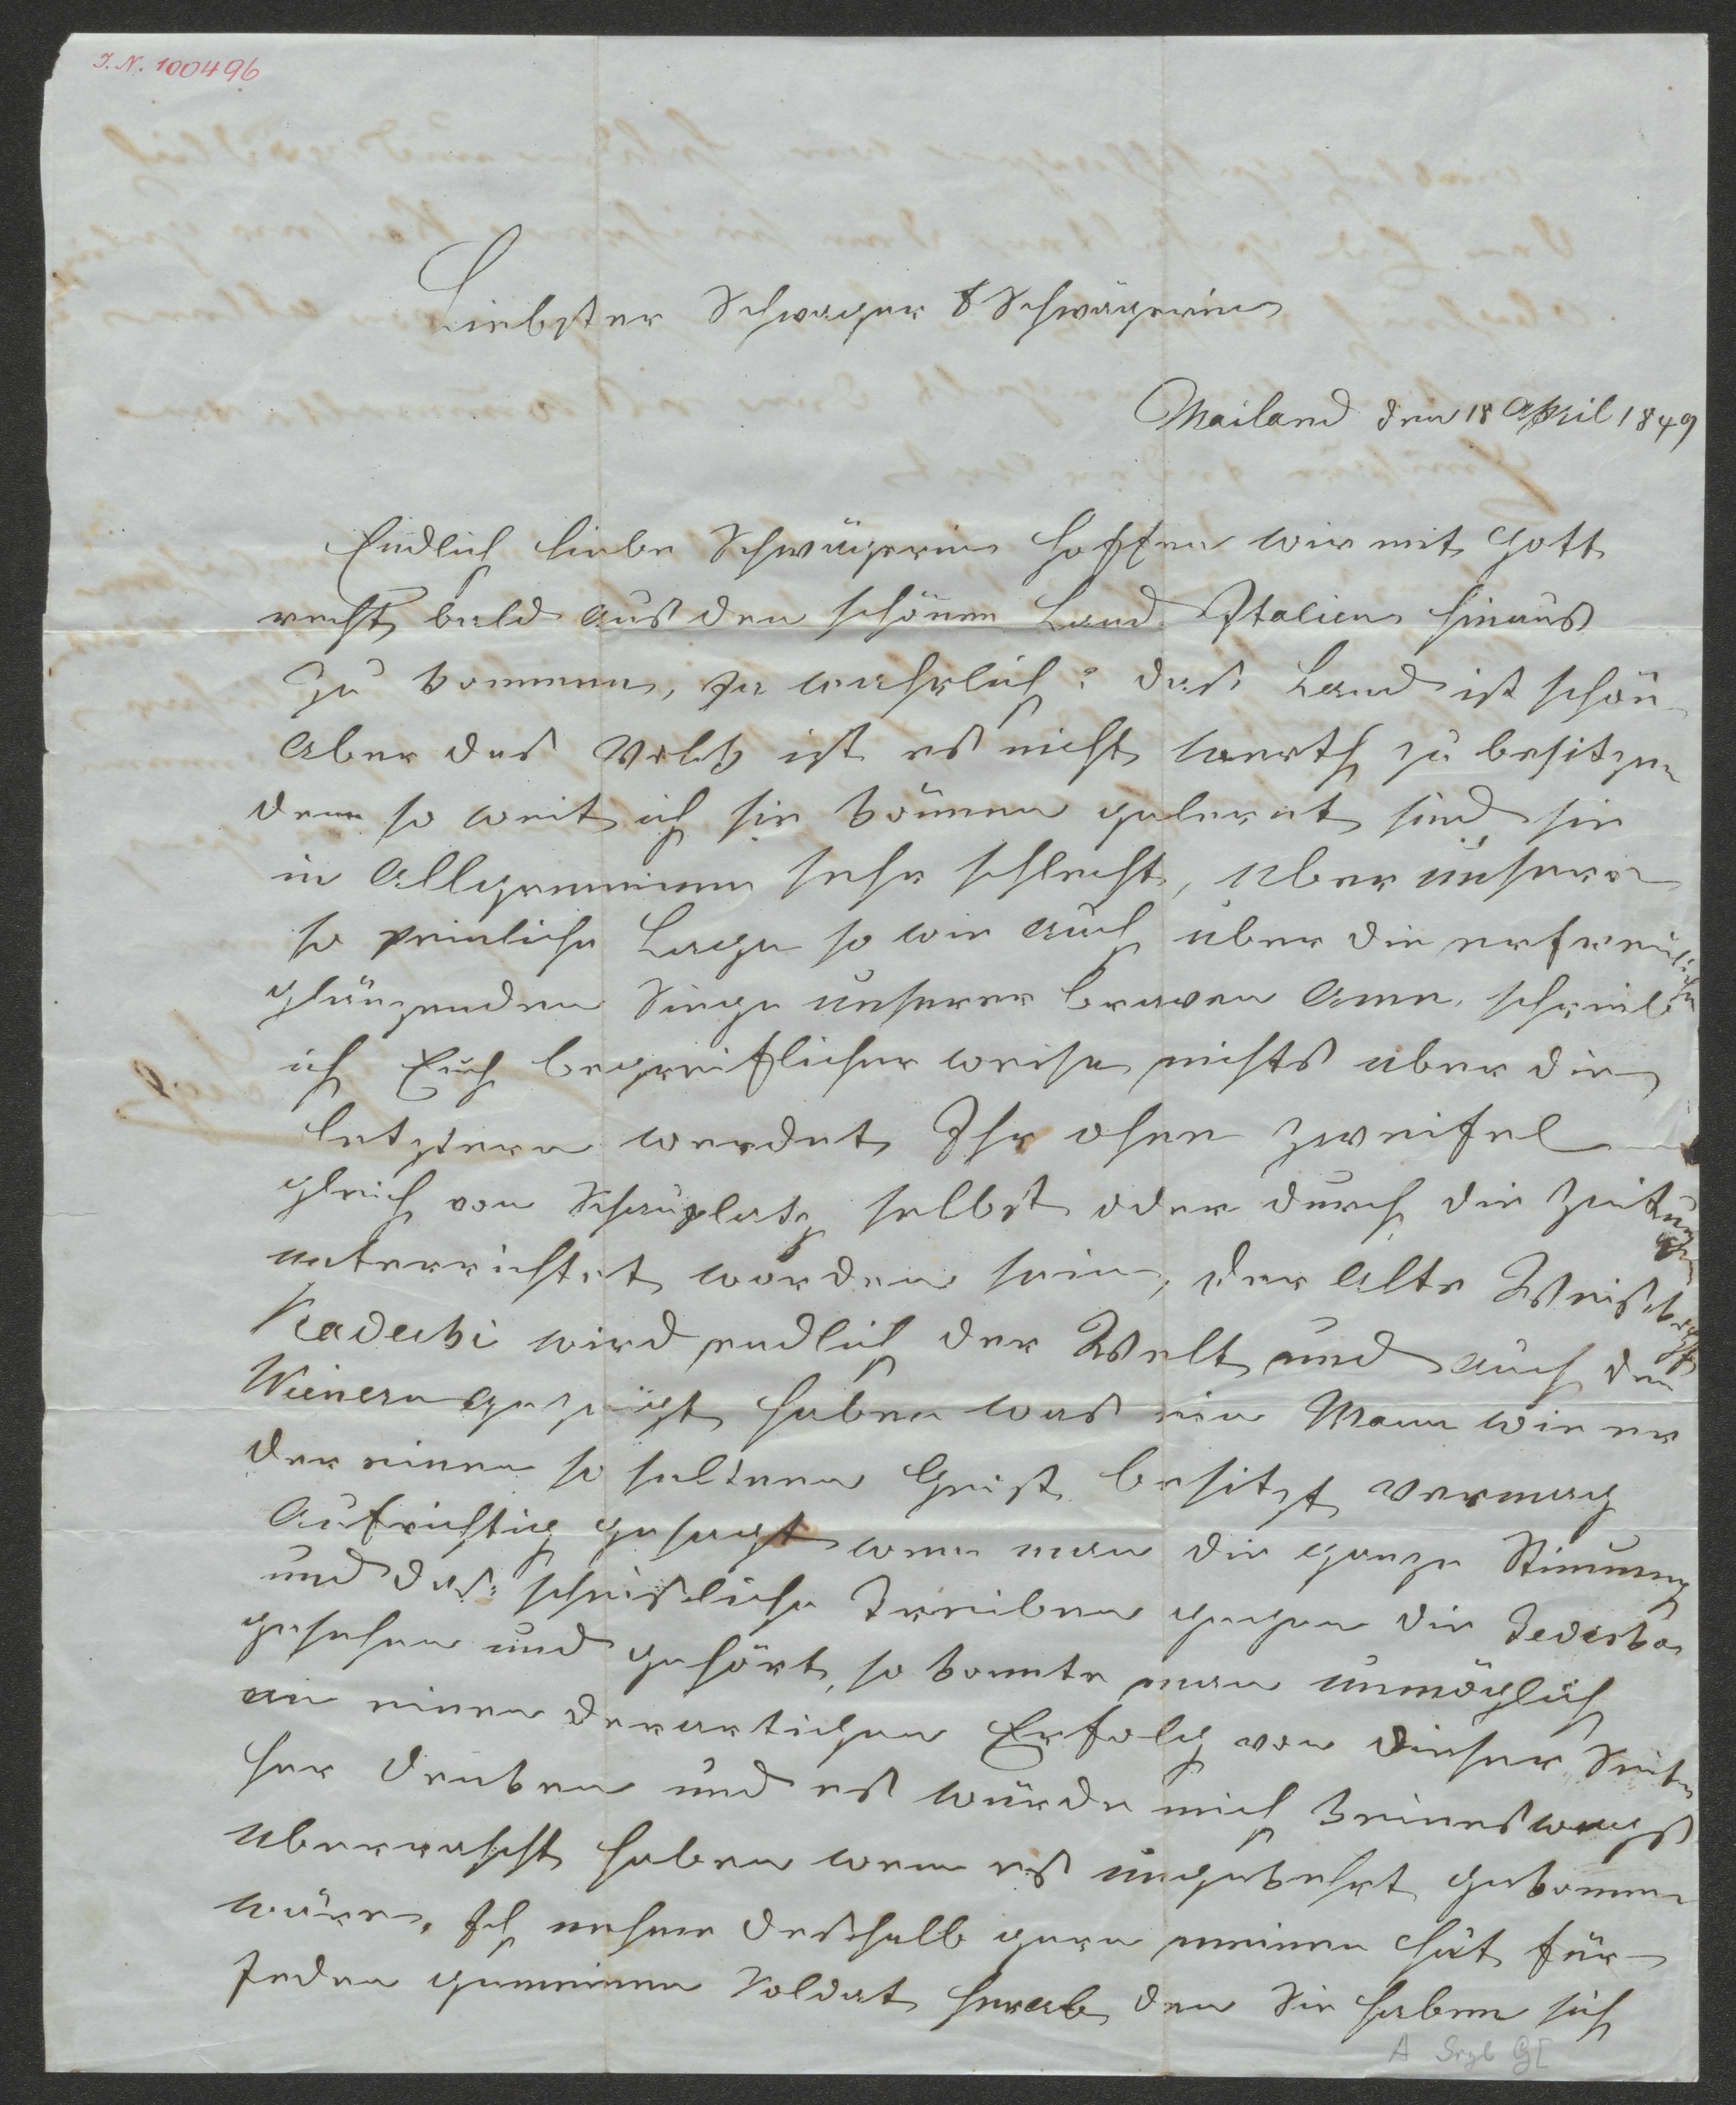 I.N. 100496
Liebster Schwager & Schwägerin
Mailand den 18 April 1849
Endlich liebe Schwägerin hoffen wir mit Gott
recht bald aus den schönen Land Italien hinaus
zu kommen, ja wahrlich: das Land ist schön
aber das Volk ist es nicht werth zu besitzen
denn so weit ich sie können gelernt sind sie
in Allgemeinen sehr schlecht, uber unsere
so peinliche Lage so wie auch uber die erfreulichen
glänzenden Siege unserer braven Arme, schreib
ich Euch begreiflicher weise nichts uber die
letztern werdet Ihr ohne Zweifel
gleich von Schauplatz selbst oder durch die Zeitungen
unterrichtet worden sein, der alte
Radecki wird endlich der Welt und auch den
Wienern gezeigt haben was ein Mann wie er
der einen so seltenen Geist besitzt vermag
Aufrichtig gesagt wenn man die ganze Stimmung
und das scheusliche Treiben gegen die Tedesko
gesehen und gehört, so konnte man unmöglich
an einen derartigen Erfolg von dieser Seite
her denken und es würde mich keineswegs
uberrascht haben wenn es umgekehrt gekommen
wäre. Ich nehme desshalb gern meinen Hut für
Jeden gemeinen Soldat herab den Sie haben sich